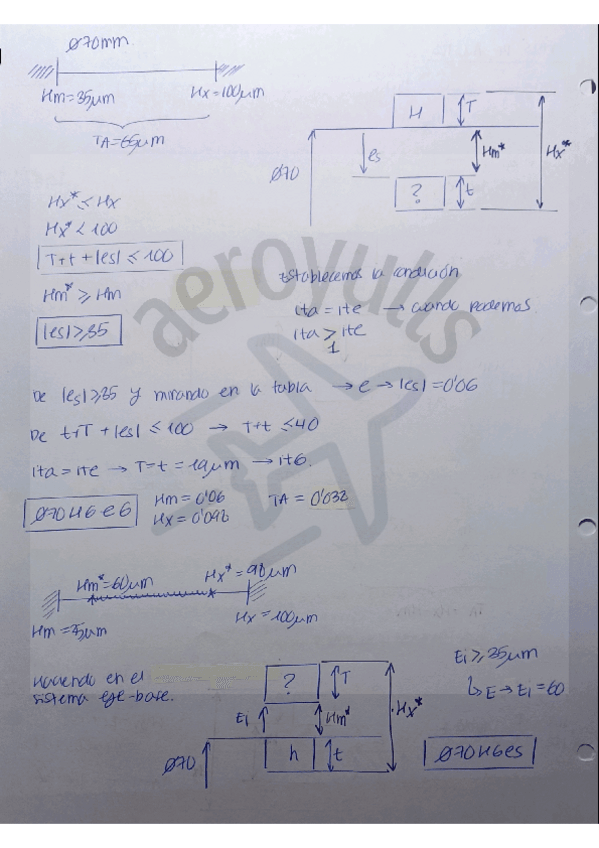 Ø70mm.
Hm=35μm
Hx=100μm
TA=65μm
H
T
es
Hm*
Hx*
Ø70
?
t
Hx* ≤ Hx
Hx* < 100
T+t + |es| ≤ 100
Hm* ≥ Hm
|es| ≥ 35
Establecemos la condición
ita = ite → cuando podemos
ita > ite
1
De |es| ≥ 35 y mirando en la tabla → e → |es| = 0'06
De t+T + |es| ≤ 100 → T+t ≤ 40
ita = ite → T=t = 19μm → it6.
Ø70H6e6
Hm = 0'06
Hx = 0'098
TA = 0'038
Hm*=60μm
Hx* = 98μm
Hm = 35μm
Hx = 100μm
Haciendo en el
sistema eje-base.
?
T
Ei
Hm*
Hx*
h
t
Ø70
Ei ≥ 35μm
↳ E → Ei = 60
Ø70H6e5
aeroyulls